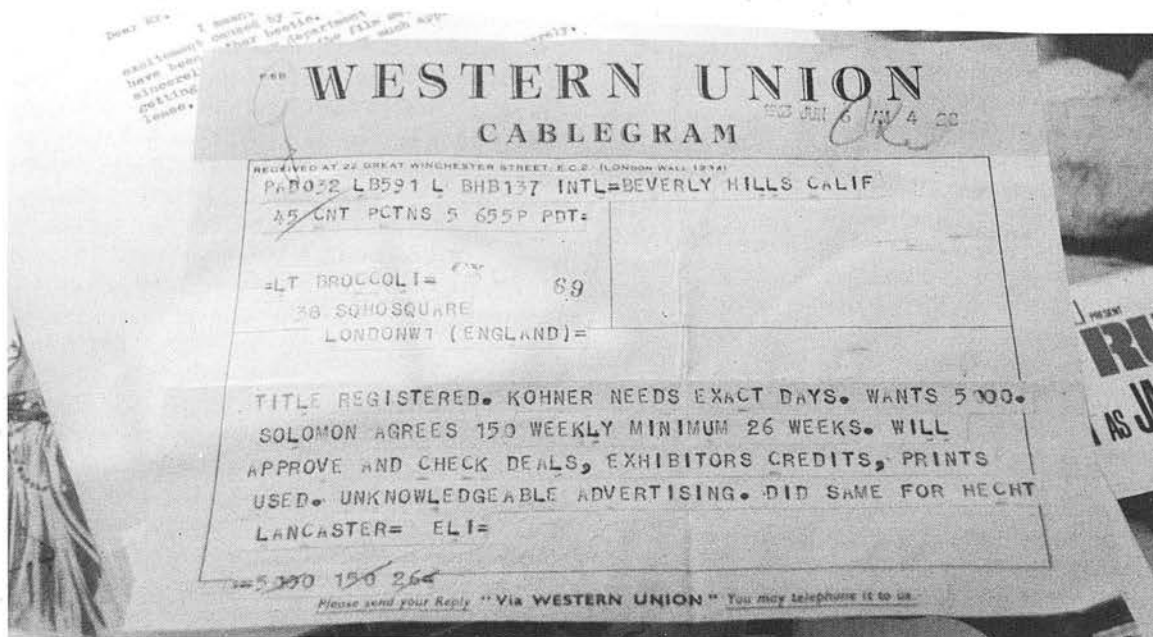 Dear Mr.
I
excitement caused by
have been
department
the film
such
sincerel
getting
lease.
WESTERN UNION
CABLEGRAM
JUN 6 AM 4
RECEIVED AT 22 GREAT WINCHESTER STREET, E.C.2. (LONDON WALL 1234)
PAB032 LB591 L BHB137 INTL=BEVERLY HILLS CALIF
45 CNT PCTNS 5 655P PDT=
=LT BROCCOLI=
69
38 SOHOSQUARE
LONDONW1 (ENGLAND)=
TITLE REGISTERED. KOHNER NEEDS EXACT DAYS. WANTS 5000.
SOLOMON AGREES 150 WEEKLY MINIMUM 26 WEEKS. WILL
APPROVE AND CHECK DEALS, EXHIBITORS CREDITS, PRINTS
USED. UNKNOWLEDGEABLE ADVERTISING. DID SAME FOR HECHT
LANCASTER= ELI=
=5000 150 26=
Please send your Reply "Via WESTERN UNION" You may telephone it to us.
PRESENT
RU
AS JA